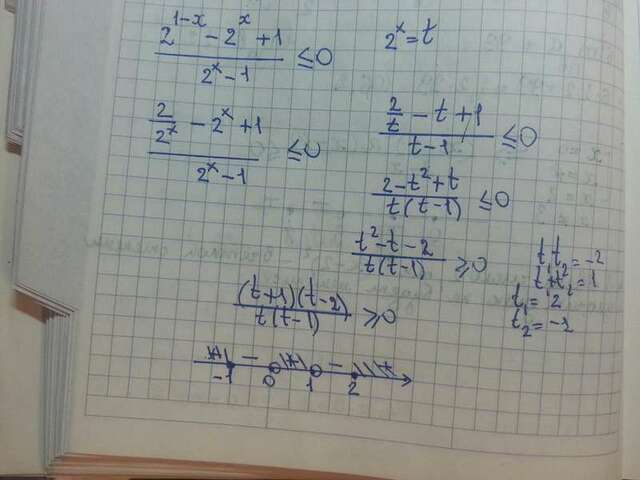 (2^(1-x) - 2^x + 1)/(2^x - 1) ≤ 0
2^x = t
(2/2^x - 2^x + 1)/(2^x - 1) ≤ 0
(2/t - t + 1)/(t - 1) ≤ 0
(2 - t² + t)/(t(t-1)) ≤ 0
(t² - t - 2)/(t(t-1)) ≥ 0
t₁t₂ = -2
t₁+t₂ = 1
t₁ = 2
t₂ = -1
((t+1)(t-2))/(t(t-1)) ≥ 0
+ - + - +
-1 0 1 2